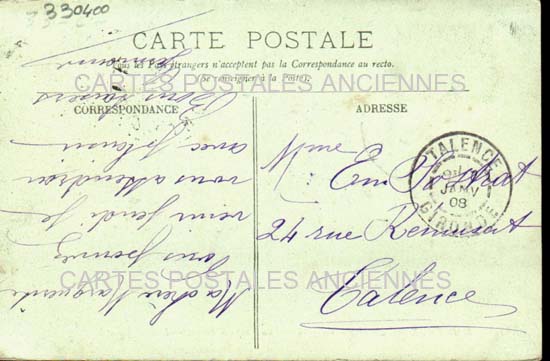 330400
CARTE POSTALE
Tous les Pays étrangers n'acceptent pas la Correspondance au recto.
(Se renseigner à la Poste).
CARTES POSTALES ANCIENNES
CORRESPONDANCE
ADRESSE
Ma chère Marguerite
vous pouvez
venir jeudi je
vous attendrai
avec plaisir
Bons baisers
Mme
Em
24 rue Remusat
Talence
TALENCE
JANV
08
GIRONDE
CARTES POSTALES ANCIENNES